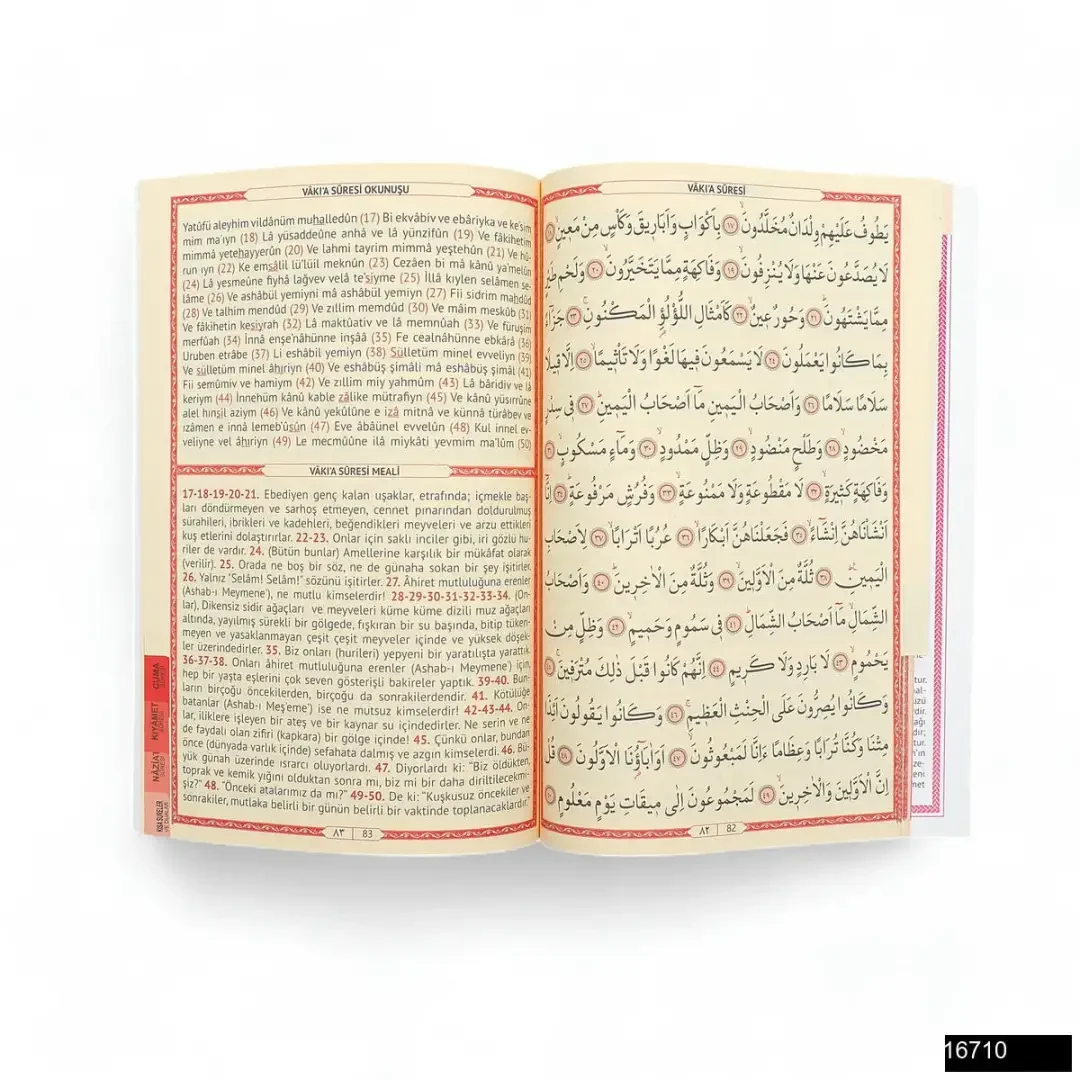 VÂKI'A SÛRESİ OKUNUŞU
Yatûfü aleyhim vildânüm muhalledûn (17) Bi ekvâbiv ve ebâriyka ve ke'sim
mim ma'ıyn (18) Lâ yüsaddeûne anhâ ve lâ yünzifûn (19) Ve fâkihetim
mimmâ yetehayyerûn (20) Ve lahmi tayrim mimmâ yeştehûn (21) Ve hû-
run ıyn (22) Ke emsâlil lü'lüil meknûn (23) Cezâen bi mâ kânû ya'melûn
(24) Lâ yesmeûne fiyhâ lağvev velâ te'siyme (25) İllâ kıylen selâmen se-
lâme (26) Ve ashâbül yemiyni mâ ashâbül yemiyn (27) Fii sidrim mahdûd
(28) Ve talhim mendûd (29) Ve zıllim memdûd (30) Ve mâim meskûb (31)
Ve fâkihetin kesiyrah (32) Lâ maktûativ ve lâ memnûah (33) Ve füruşim
merfûah (34) İnnâ enşe'nâhünne inşââ (35) Fe cealnâhünne ebkârâ (36)
Uruben etrâbe (37) Li eshâbil yemiyn (38) Sülletüm minel evveliyn (39)
Ve sülletüm minel âhıriyn (40) Ve eshâbüş şimâli mâ eshâbüş şimâl (41)
Fii semûmiv ve hamiym (42) Ve zıllim miy yahmûm (43) Lâ bâridiv ve lâ
keriym (44) İnnehüm kânû kable zâlike mütrafiyn (45) Ve kânû yüsırrûne
alel hınsil aziym (46) Ve kânû yekûlûne e izâ mitnâ ve künnâ türâbev ve
ızâmen e innâ lemeb'ûsûn (47) Eve âbâünel evvelûn (48) Kul innel ev-
veliyne vel âhıriyn (49) Le mecmûûne ilâ miykâti yevmim ma'lûm (50)
VÂKI'A SÛRESİ MEALİ
17-18-19-20-21. Ebediyen genç kalan uşaklar, etrafında; içmekle baş-
ları döndürmeyen ve sarhoş etmeyen, cennet pınarından doldurulmuş
sürahileri, ibrikleri ve kadehleri, beğendikleri meyveleri ve arzu ettikleri
kuş etlerini dolaştırırlar. 22-23. Onlar için saklı inciler gibi, iri gözlü hu-
riler de vardır. 24. (Bütün bunlar) Amellerine karşılık bir mükâfat olarak
(verilir). 25. Orada ne boş bir söz, ne de günaha sokan bir şey işitirler.
26. Yalnız "Selâm! Selâm!" sözünü işitirler. 27. Âhiret mutluluğuna erenler
(Ashab-ı Meymene'), ne mutlu kimselerdir! 28-29-30-31-32-33-34. (On-
lar), Dikensiz sidir ağaçları ve meyveleri küme küme dizili muz ağaçları
altında, yayılmış sürekli bir gölgede, fışkıran bir su başında, bitip tüken-
meyen ve yasaklanmayan çeşit çeşit meyveler içinde ve yüksek döşek-
ler üzerindedirler. 35. Biz onları (hurileri) yepyeni bir yaratılışta yarattık.
36-37-38. Onları âhiret mutluluğuna erenler (Ashab-ı Meymene') için,
hep bir yaşta eşlerini çok seven gösterişli bakireler yaptık. 39-40. Bun-
ların birçoğu öncekilerden, birçoğu da sonrakilerdendir. 41. Kötülüğe
batanlar (Ashab-ı Meş'eme') ise ne mutsuz kimselerdir! 42-43-44. On-
lar, iliklere işleyen bir ateş ve bir kaynar su içindedirler. Ne serin ve ne
de faydalı olan zifiri (kapkara) bir gölge içinde! 45. Çünkü onlar, bundan
önce (dünyada varlık içinde) sefahata dalmış ve azgın kimselerdi. 46. Bü-
yük günah üzerinde ısrarcı oluyorlardı. 47. Diyorlardı ki: "Biz öldükten,
toprak ve kemik yığını olduktan sonra mı, biz mi bir daha diriltilecekmi-
şiz?" 48. "Önceki atalarımız da mı?" 49-50. De ki: "Kuşkusuz öncekiler ve
sonrakiler, mutlaka belirli bir günün belirli bir vaktinde toplanacaklardır."
٨٣ 83
CUMA
KIYAMET
NÂZİAT
KISA SÛRELER
VÂKI'A SÛRESİ
يَطُوفُ عَلَيْهِمْ وِلْدَانٌ مُخَلَّدُونَۙ ﴿١٧﴾ بِاَكْوَابٍ وَاَبَار۪يقَ وَكَأْسٍ مِنْ مَع۪ينٍۙ
لَا يُصَدَّعُونَ عَنْهَا وَلَا يُنْزِفُونَۙ ﴿١٩﴾ وَفَاكِهَةٍ مِمَّا يَتَخَيَّرُونَۙ ﴿٢٠﴾ وَلَحْمِ طَيْرٍ
مِمَّا يَشْتَهُونَۜ ﴿٢١﴾ وَحُورٌ ع۪ينٌۙ ﴿٢٢﴾ كَاَمْثَالِ اللُّؤْلُؤِ الْمَكْنُونِۚ ﴿٢٣﴾ جَزَٓاءً
بِمَا كَانُوا يَعْمَلُونَ ﴿٢٤﴾ لَا يَسْمَعُونَ ف۪يهَا لَغْوًا وَلَا تَأْث۪يمًاۙ ﴿٢٥﴾ اِلَّا ق۪يلًا
سَلَامًا سَلَامًا ﴿٢٦﴾ وَاَصْحَابُ الْيَم۪ينِ مَٓا اَصْحَابُ الْيَم۪ينِۜ ﴿٢٧﴾ ف۪ي سِدْرٍ
مَخْضُودٍۙ ﴿٢٨﴾ وَطَلْحٍ مَنْضُودٍۙ ﴿٢٩﴾ وَظِلٍّ مَمْدُودٍۙ ﴿٣٠﴾ وَمَٓاءٍ مَسْكُوبٍۙ
وَفَاكِهَةٍ كَث۪يرَةٍۙ ﴿٣٢﴾ لَا مَقْطُوعَةٍ وَلَا مَمْنُوعَةٍۙ ﴿٣٣﴾ وَفُرُشٍ مَرْفُوعَةٍۜ ﴿٣٤﴾ اِنَّٓا
اَنْشَأْنَاهُنَّ اِنْشَٓاءًۙ ﴿٣٥﴾ فَجَعَلْنَاهُنَّ اَبْكَارًاۙ ﴿٣٦﴾ عُرُبًا اَتْرَابًاۙ ﴿٣٧﴾ لِاَصْحَابِ
الْيَم۪ينِۜ ﴿٣٨﴾ ثُلَّةٌ مِنَ الْاَوَّل۪ينَۙ ﴿٣٩﴾ وَثُلَّةٌ مِنَ الْاٰخِر۪ينَۜ ﴿٤٠﴾ وَاَصْحَابُ
الشِّمَالِۙ مَٓا اَصْحَابُ الشِّمَالِۜ ﴿٤١﴾ ف۪ي سَمُومٍ وَحَم۪يمٍۙ ﴿٤٢﴾ وَظِلٍّ مِنْ
يَحْمُومٍۙ ﴿٤٣﴾ لَا بَارِدٍ وَلَا كَر۪يمٍ ﴿٤٤﴾ اِنَّهُمْ كَانُوا قَبْلَ ذٰلِكَ مُتْرَف۪ينَۚ
وَكَانُوا يُصِرُّونَ عَلَى الْحِنْثِ الْعَظ۪يمِۚ ﴿٤٦﴾ وَكَانُوا يَقُولُونَ اَئِذَا
مِتْنَا وَكُنَّا تُرَابًا وَعِظَامًا ءَاِنَّا لَمَبْعُوثُونَۙ ﴿٤٧﴾ اَوَاٰبَٓاؤُ۬نَا الْاَوَّلُونَ ﴿٤٨﴾ قُلْ
اِنَّ الْاَوَّل۪ينَ وَالْاٰخِر۪ينَۙ ﴿٤٩﴾ لَمَجْمُوعُونَ اِلٰى م۪يقَاتِ يَوْمٍ مَعْلُومٍ
٨٢ 82
16710